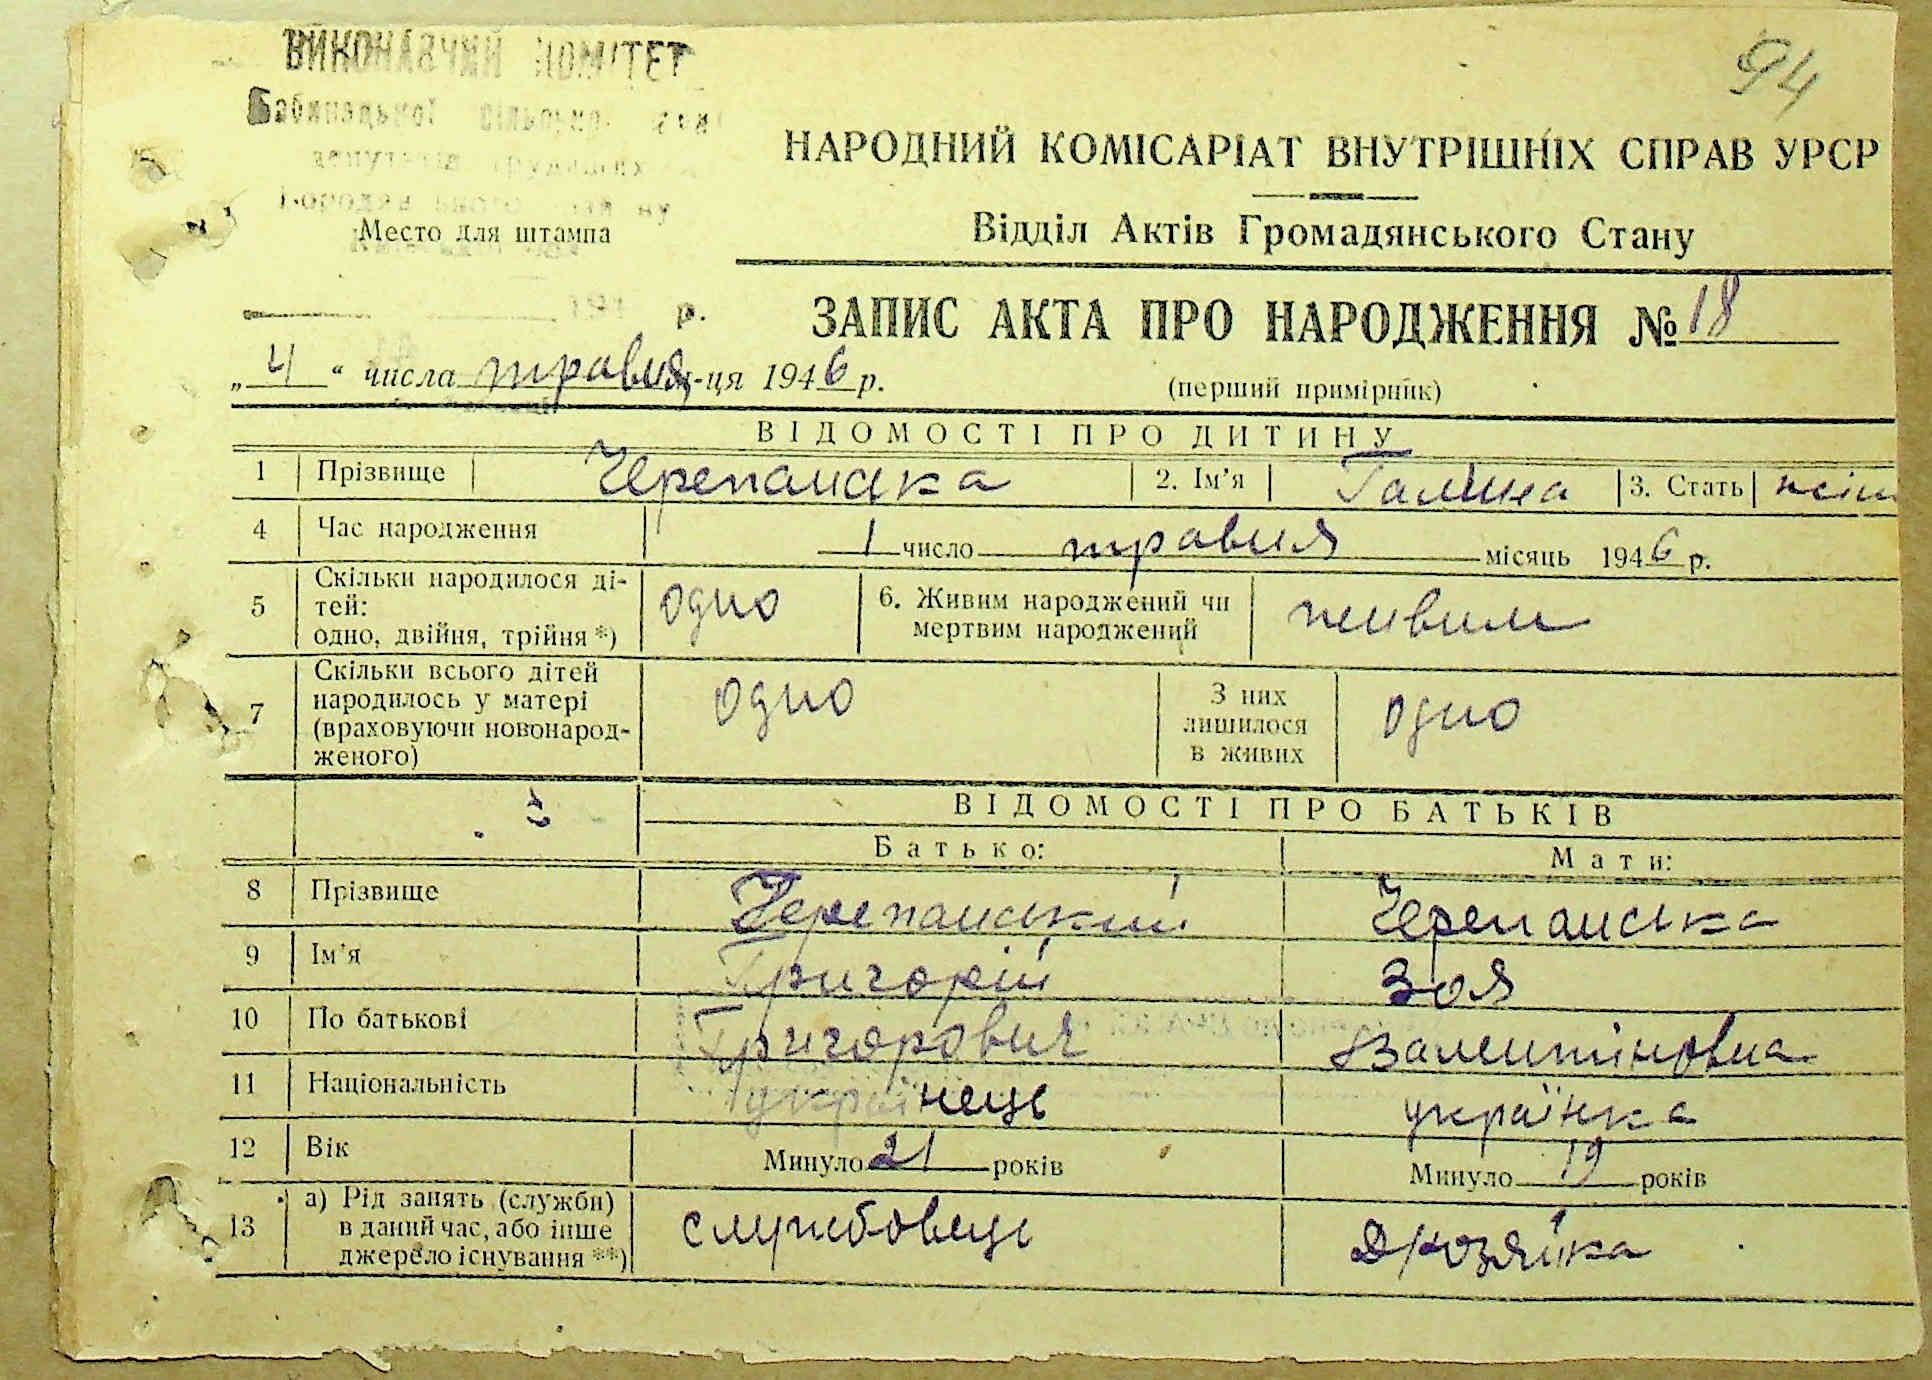 ВИКОНАВЧИЙ КОМІТЕТ
94
НАРОДНИЙ КОМІСАРІАТ ВНУТРІШНІХ СПРАВ УРСР
Место для штампа
Відділ Актів Громадянського Стану
р.
ЗАПИС АКТА ПРО НАРОДЖЕННЯ № 18
„ 4 “ числа травня м-ця 1946 р.
(перший примірник)
ВІДОМОСТІ ПРО ДИТИНУ
1 Прізвище Черепанська 2. Ім'я Галина 3. Стать жін
4 Час народження 1 число травня місяць 1946 р.
5 Скільки народилося ді-
тей:
одно, двійня, трійня *) одно 6. Живим народжений чи
мертвим народжений живим
7 Скільки всього дітей
народилось у матері
(враховуючи новонарод-
женого) одно З них
лишилося
в живих одно
ВІДОМОСТІ ПРО БАТЬКІВ
Батько: Мати:
8 Прізвище Черепанський Черепанська
9 Ім'я Григорій Зоя
10 По батькові Григорович Валентіновна
11 Національність українець українка
12 Вік Минуло 21 років Минуло 19 років
13 а) Рід занять (служби)
в даний час, або інше
джерело існування **) службовець Д/хозяйка